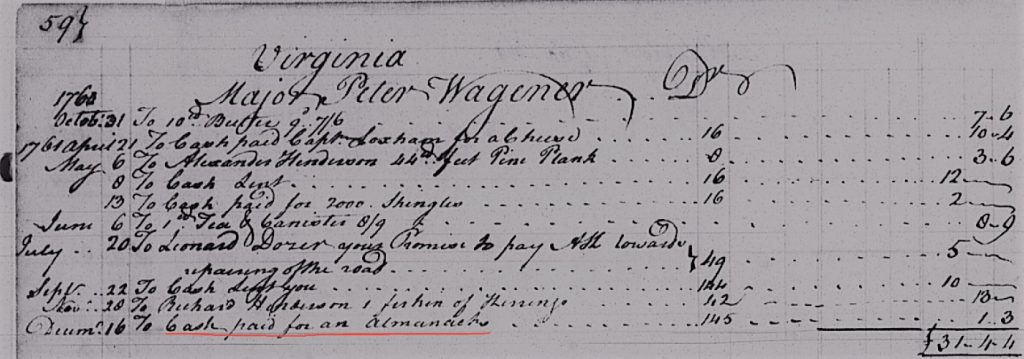 59}
Virginia
Major Peter Wagener Dr
1760
Octob: 31 To 10 lb Butter 9d 7/6 7-6
1761 April 21 To Cash paid Capt. Loxham for a Cheese 16 10-4
May 6 To Alexander Henderson 44 feet Pine Plank 8 3-6
8 To Cash Lent 16 12
13 To Cash paid for 2000 Shingles 16 2
June 6 To 1 lb Tea & Canister 8/9 8-9
July 20 To Leonard Dozer your Promise to pay towards
repairing of the road } 49 5
Sept. 22 To Cash Lent you 144 10
Nov. 28 To Richard Henderson 1 firkin of Herrings 42 13
Decem. 16 To Cash paid for an Almanack 145 1.3
£31-4-4